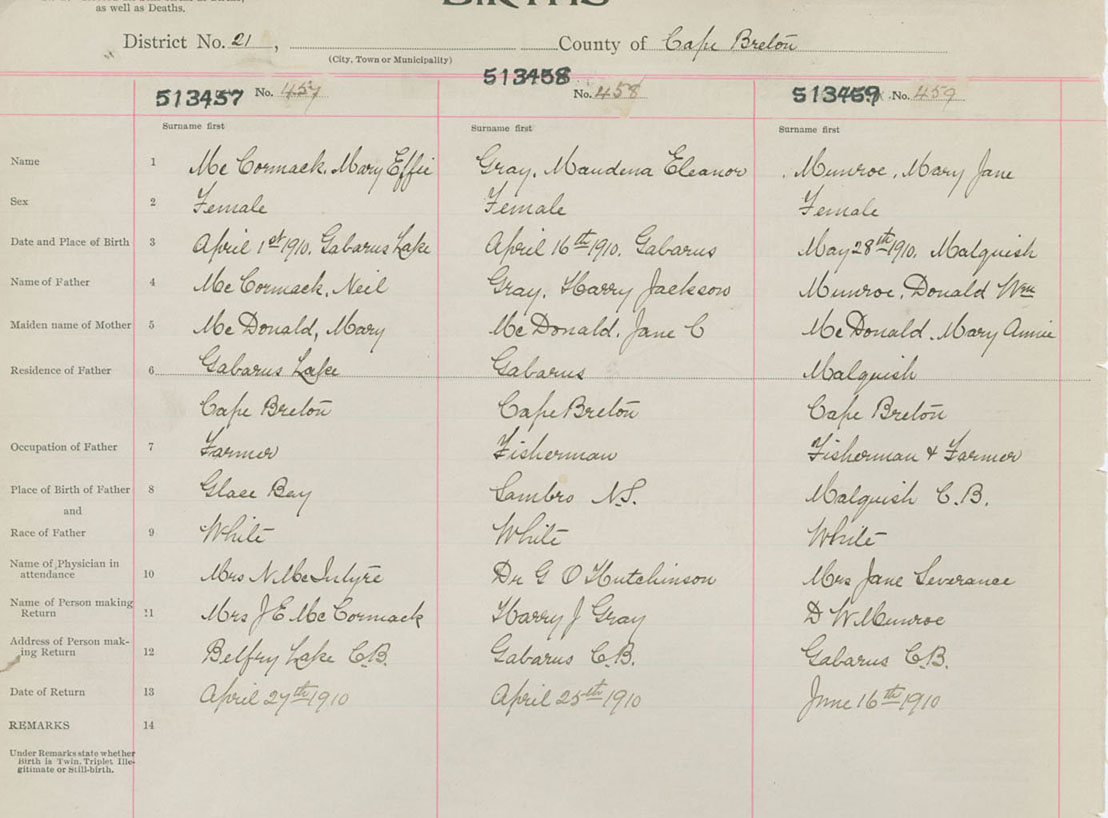 as well as Deaths.
BIRTHS
District No. 21, County of Cape Breton
(City, Town or Municipality)
513457 No. 457 513458 No. 458 513459 No. 459
Surname first Surname first Surname first
Name 1 Mc Cormack, Mary Effie Gray, Maudena Eleanor Munroe, Mary Jane
Sex 2 Female Female Female
Date and Place of Birth 3 April 1st 1910, Gabarus Lake April 16th 1910, Gabarus May 28th 1910, Malquish
Name of Father 4 Mc Cormack, Neil Gray, Harry Jackson Munroe, Donald Wm
Maiden name of Mother 5 Mc Donald, Mary Mc Donald, Jane C Mc Donald, Mary Annie
Residence of Father 6 Gabarus Lake Gabarus Malquish
Cape Breton Cape Breton Cape Breton
Occupation of Father 7 Farmer Fisherman Fisherman & Farmer
Place of Birth of Father 8 Glace Bay Sambro N.S. Malquish C.B.
and
Race of Father 9 White White White
Name of Physician in attendance 10 Mrs N. Mc Intyre Dr G O Hutchinson Mrs Jane Severance
Name of Person making Return 11 Mrs J E Mc Cormack Harry J Gray D W Munroe
Address of Person mak-ing Return 12 Belfry Lake C.B. Gabarus C.B. Gabarus C.B.
Date of Return 13 April 27th 1910 April 25th 1910 June 16th 1910
REMARKS 14
Under Remarks state whether
Birth is Twin, Triplet Ille-
gitimate or Still-birth.